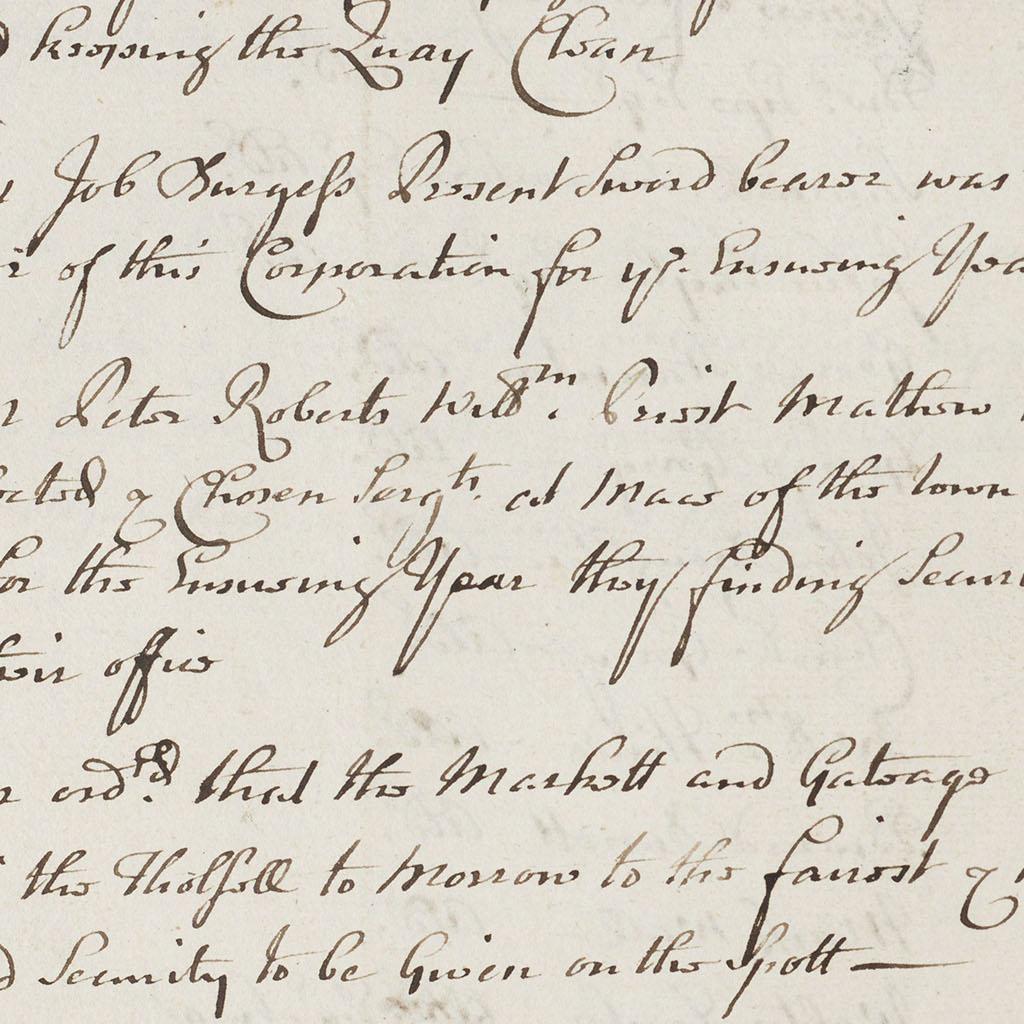 keeping the Quay Clean
Job Burgess Present Sword bearer was
of this Corporation for ye. Ensueing Yea
Peter Roberts Willm. Priest Mathew
ected & Chosen Sergts. at Mace of the town
for the Ensueing Year they finding Securi
heir office
ordred. that the Markett and Gateage
the Tholsell to Morrow to the fairest &
Security to be Given on the Spott —